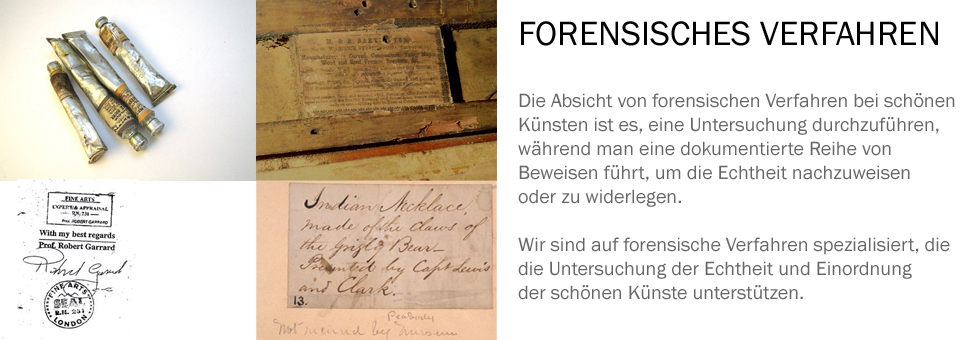 FORENSISCHES VERFAHREN
Die Absicht von forensischen Verfahren bei schönen
Künsten ist es, eine Untersuchung durchzuführen,
während man eine dokumentierte Reihe von
Beweisen führt, um die Echtheit nachzuweisen
oder zu widerlegen.
Wir sind auf forensische Verfahren spezialisiert, die
die Untersuchung der Echtheit und Einordnung
der schönen Künste unterstützen.
FINE ARTS
EXPERT & APPRAISAL
Prof. ROBERT GARRARD
With my best regards
Prof. Robert Garrard
FINE ARTS
SEAL
R.H. 231
LONDON
Indian Necklace,
made of the claws of
the grizly Bear
Presented by Capt Lewis
and Clark.
13.
Peabody
Not by Museum